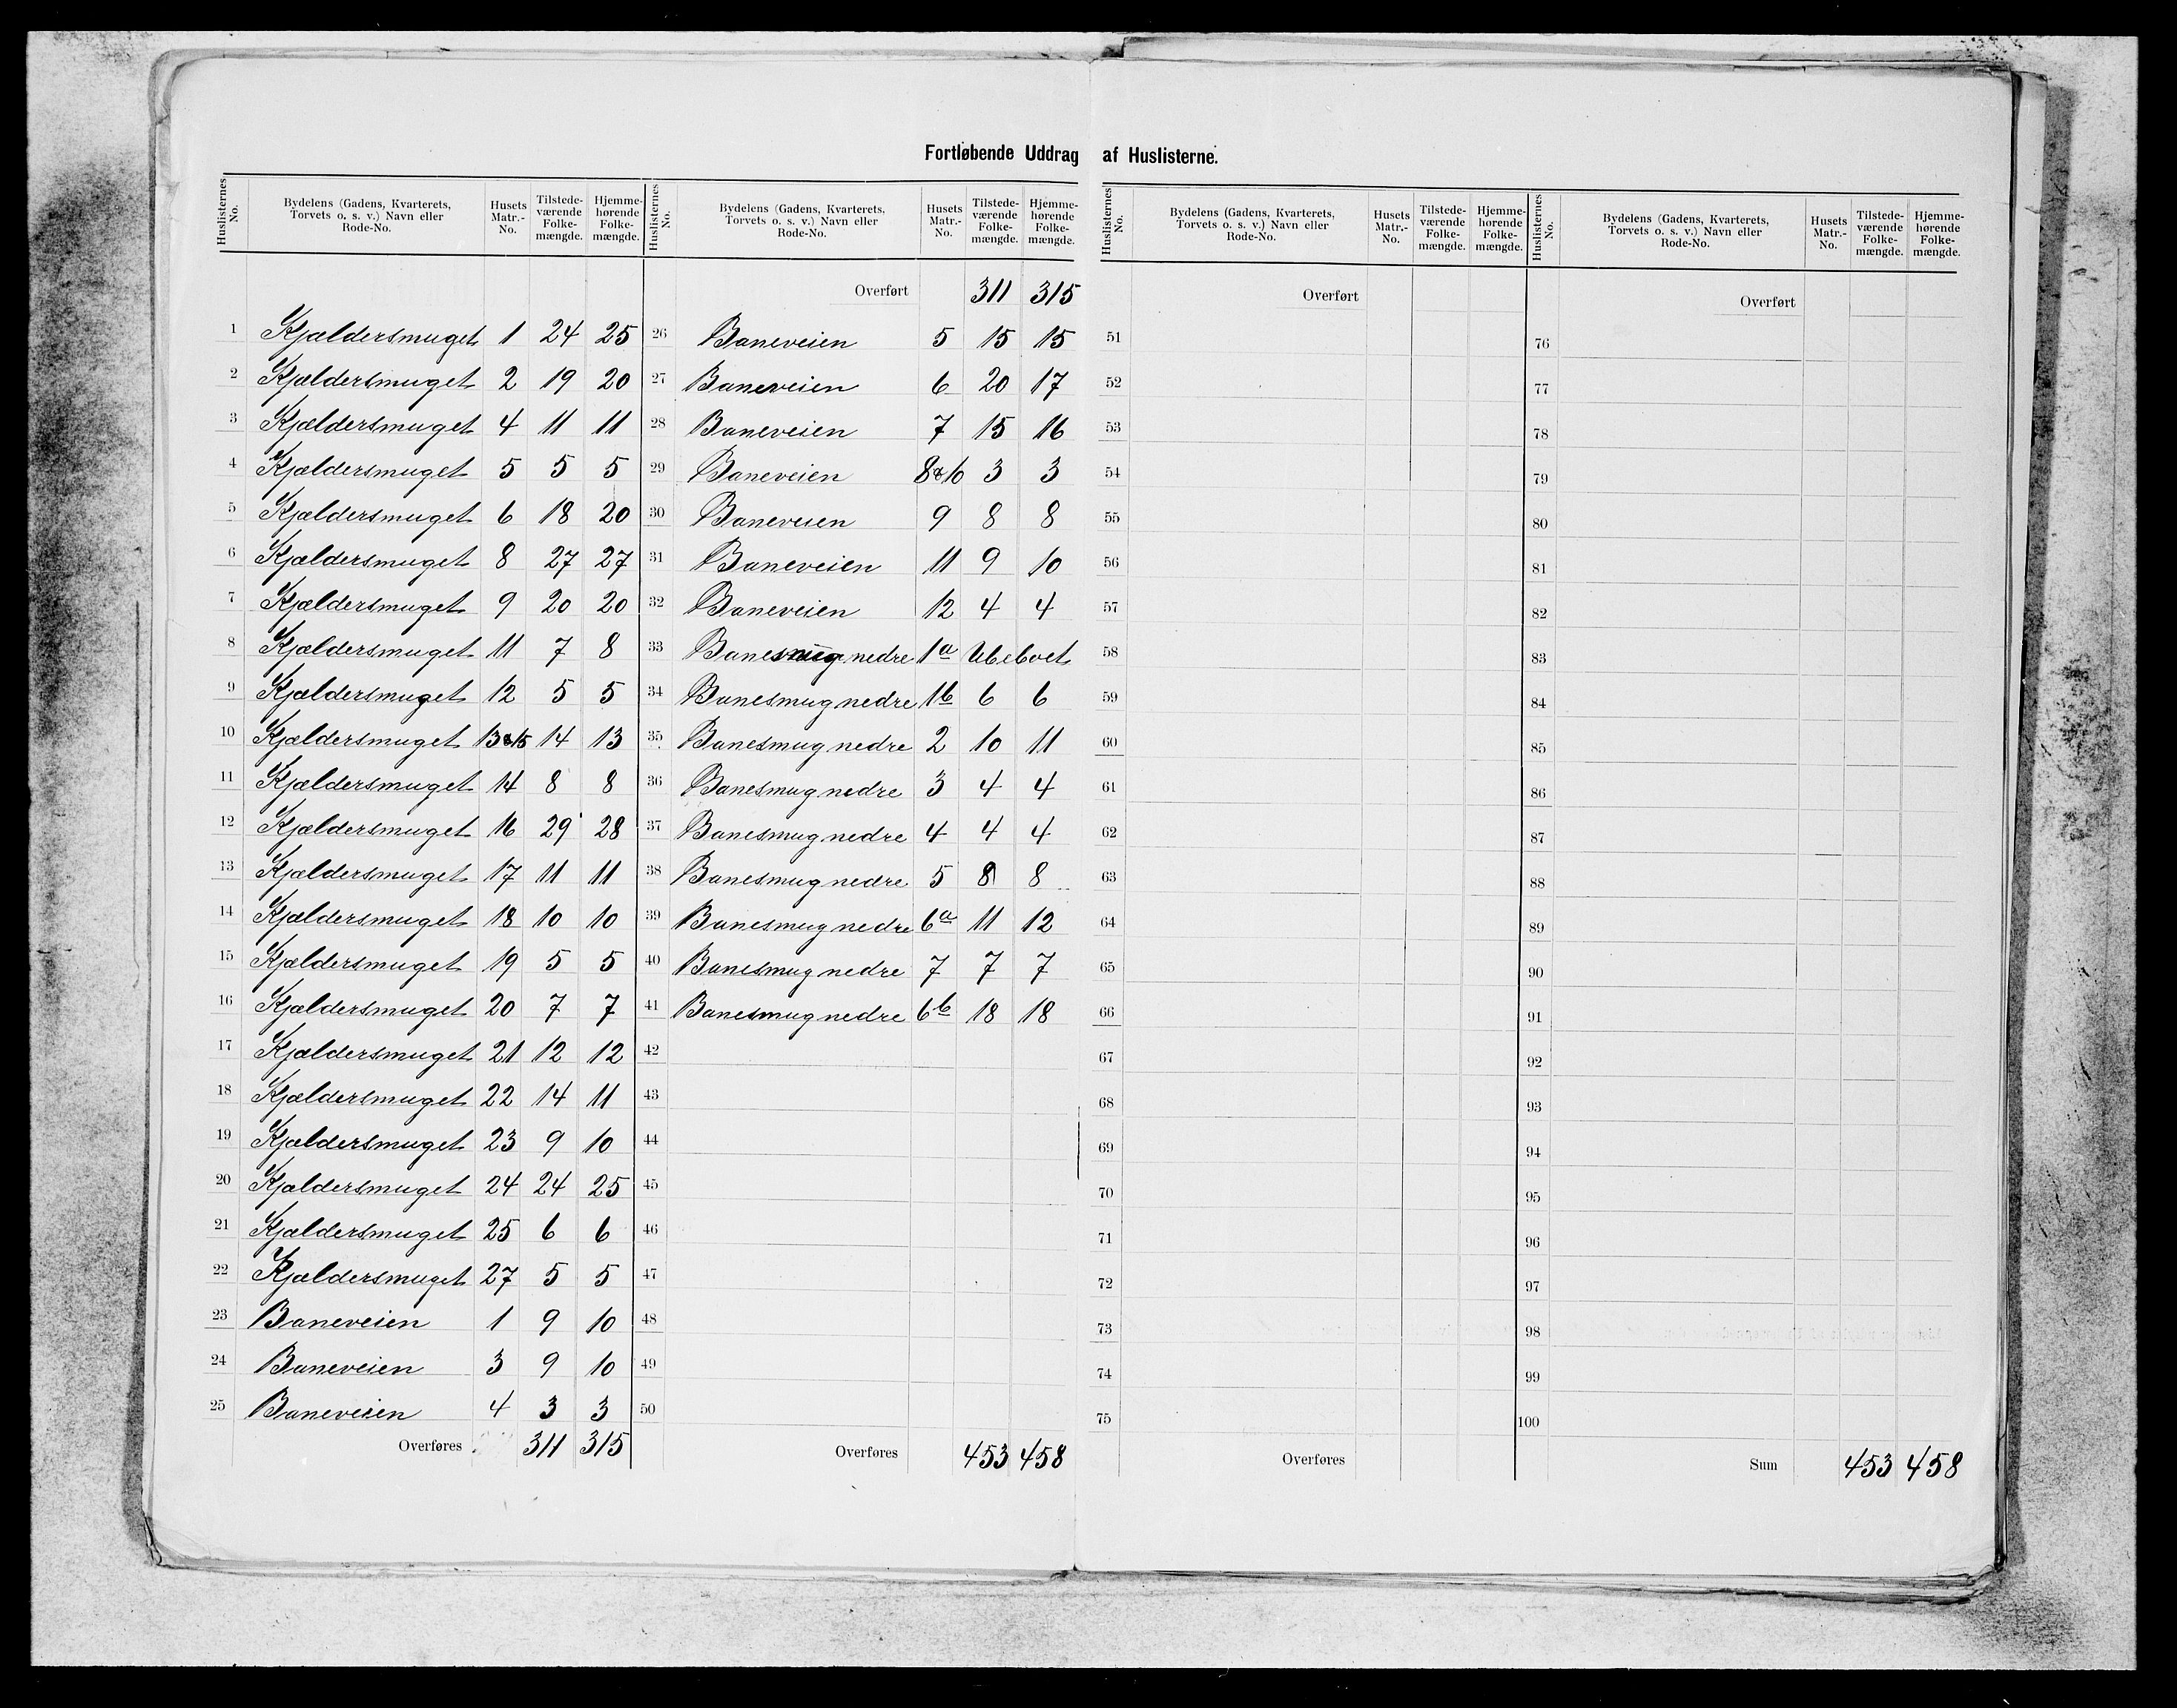 Fortløbende Uddrag af Huslisterne.
Huslisternes No. Bydelens (Gadens, Kvarterets, Torvets o. s. v.) Navn eller Rode-No. Husets Matr.-No. Tilstede-værende Folke-mængde. Hjemme-hørende Folke-mængde.
1 Kjældersmuget 1 24 25
2 Kjældersmuget 2 19 20
3 Kjældersmuget 4 11 11
4 Kjældersmuget 5 5 5
5 Kjældersmuget 6 18 20
6 Kjældersmuget 8 27 27
7 Kjældersmuget 9 20 20
8 Kjældersmuget 11 7 8
9 Kjældersmuget 12 5 5
10 Kjældersmuget 13&15 14 13
11 Kjældersmuget 14 8 8
12 Kjældersmuget 16 29 28
13 Kjældersmuget 17 11 11
14 Kjældersmuget 18 10 10
15 Kjældersmuget 19 5 5
16 Kjældersmuget 20 7 7
17 Kjældersmuget 21 12 12
18 Kjældersmuget 22 14 11
19 Kjældersmuget 23 9 10
20 Kjældersmuget 24 24 25
21 Kjældersmuget 25 6 6
22 Kjældersmuget 27 5 5
23 Baneveien 1 9 10
24 Baneveien 3 9 10
25 Baneveien 4 3 3
Overføres 311 315
Huslisternes No. Bydelens (Gadens, Kvarterets, Torvets o. s. v.) Navn eller Rode-No. Husets Matr.-No. Tilstede-værende Folke-mængde. Hjemme-hørende Folke-mængde.
Overført 311 315
26 Baneveien 5 15 15
27 Baneveien 6 20 17
28 Baneveien 7 15 16
29 Baneveien 8&10 3 3
30 Baneveien 9 8 8
31 Baneveien 11 9 10
32 Baneveien 12 4 4
33 Banesmug nedre 1a Ubeboet
34 Banesmug nedre 1b 6 6
35 Banesmug nedre 2 10 11
36 Banesmug nedre 3 4 4
37 Banesmug nedre 4 4 4
38 Banesmug nedre 5 8 8
39 Banesmug nedre 6a 11 12
40 Banesmug nedre 7 7 7
41 Banesmug nedre 6b 18 18
42
43
44
45
46
47
48
49
50
Overføres 453 458
Huslisternes No. Bydelens (Gadens, Kvarterets, Torvets o. s. v.) Navn eller Rode-No. Husets Matr.-No. Tilstede-værende Folke-mængde. Hjemme-hørende Folke-mængde.
Overført
51
52
53
54
55
56
57
58
59
60
61
62
63
64
65
66
67
68
69
70
71
72
73
74
75
Overføres
Huslisternes No. Bydelens (Gadens, Kvarterets, Torvets o. s. v.) Navn eller Rode-No. Husets Matr.-No. Tilstede-værende Folke-mængde. Hjemme-hørende Folke-mængde.
Overført
76
77
78
79
80
81
82
83
84
85
86
87
88
89
90
91
92
93
94
95
96
97
98
99
100
Sum 453 458